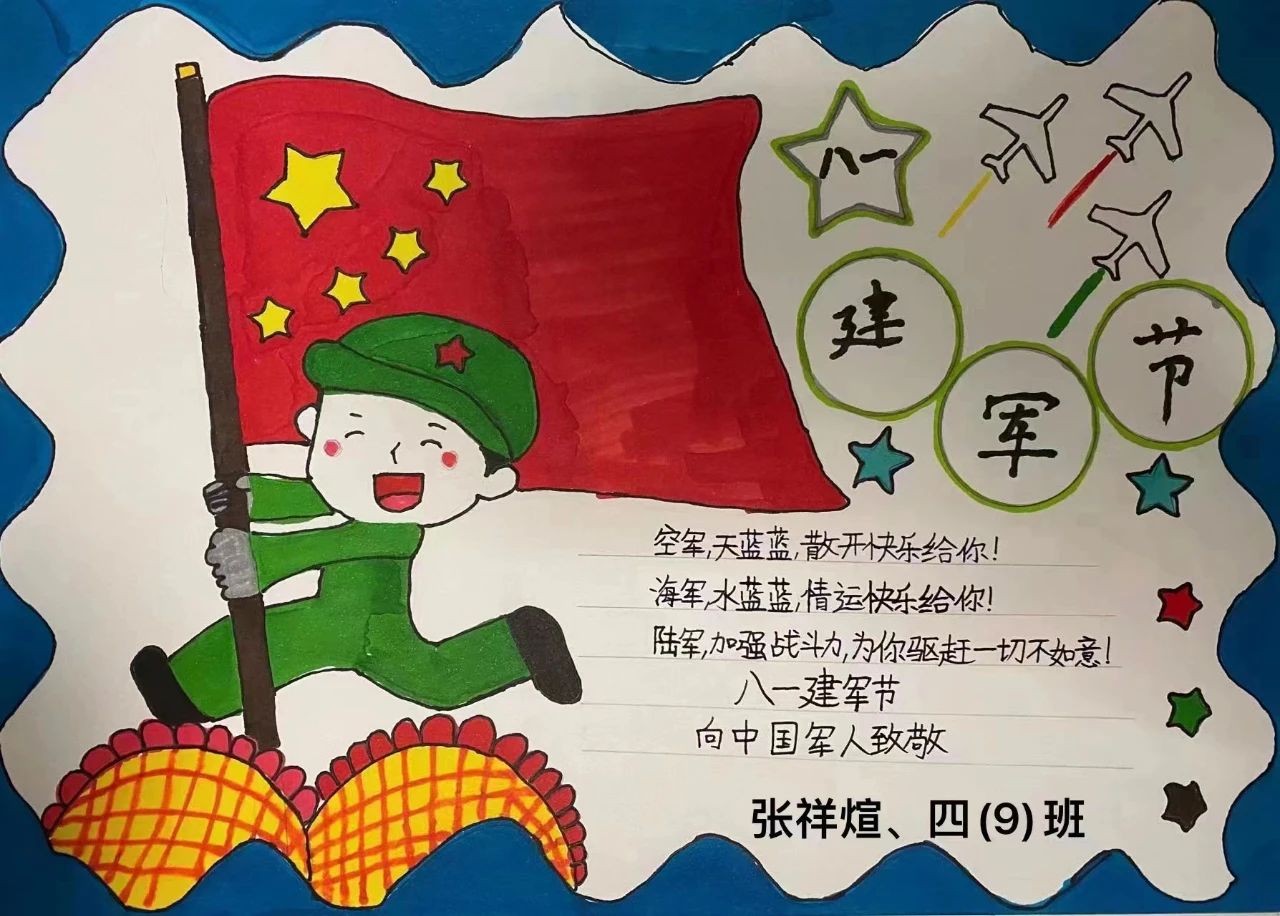 八一
建
军
节
空军,天蓝蓝,散开快乐给你!
海军,水蓝蓝,情运快乐给你!
陆军,加强战斗力,为你驱赶一切不如意!
八一建军节
向中国军人致敬
张祥煊、四(9)班